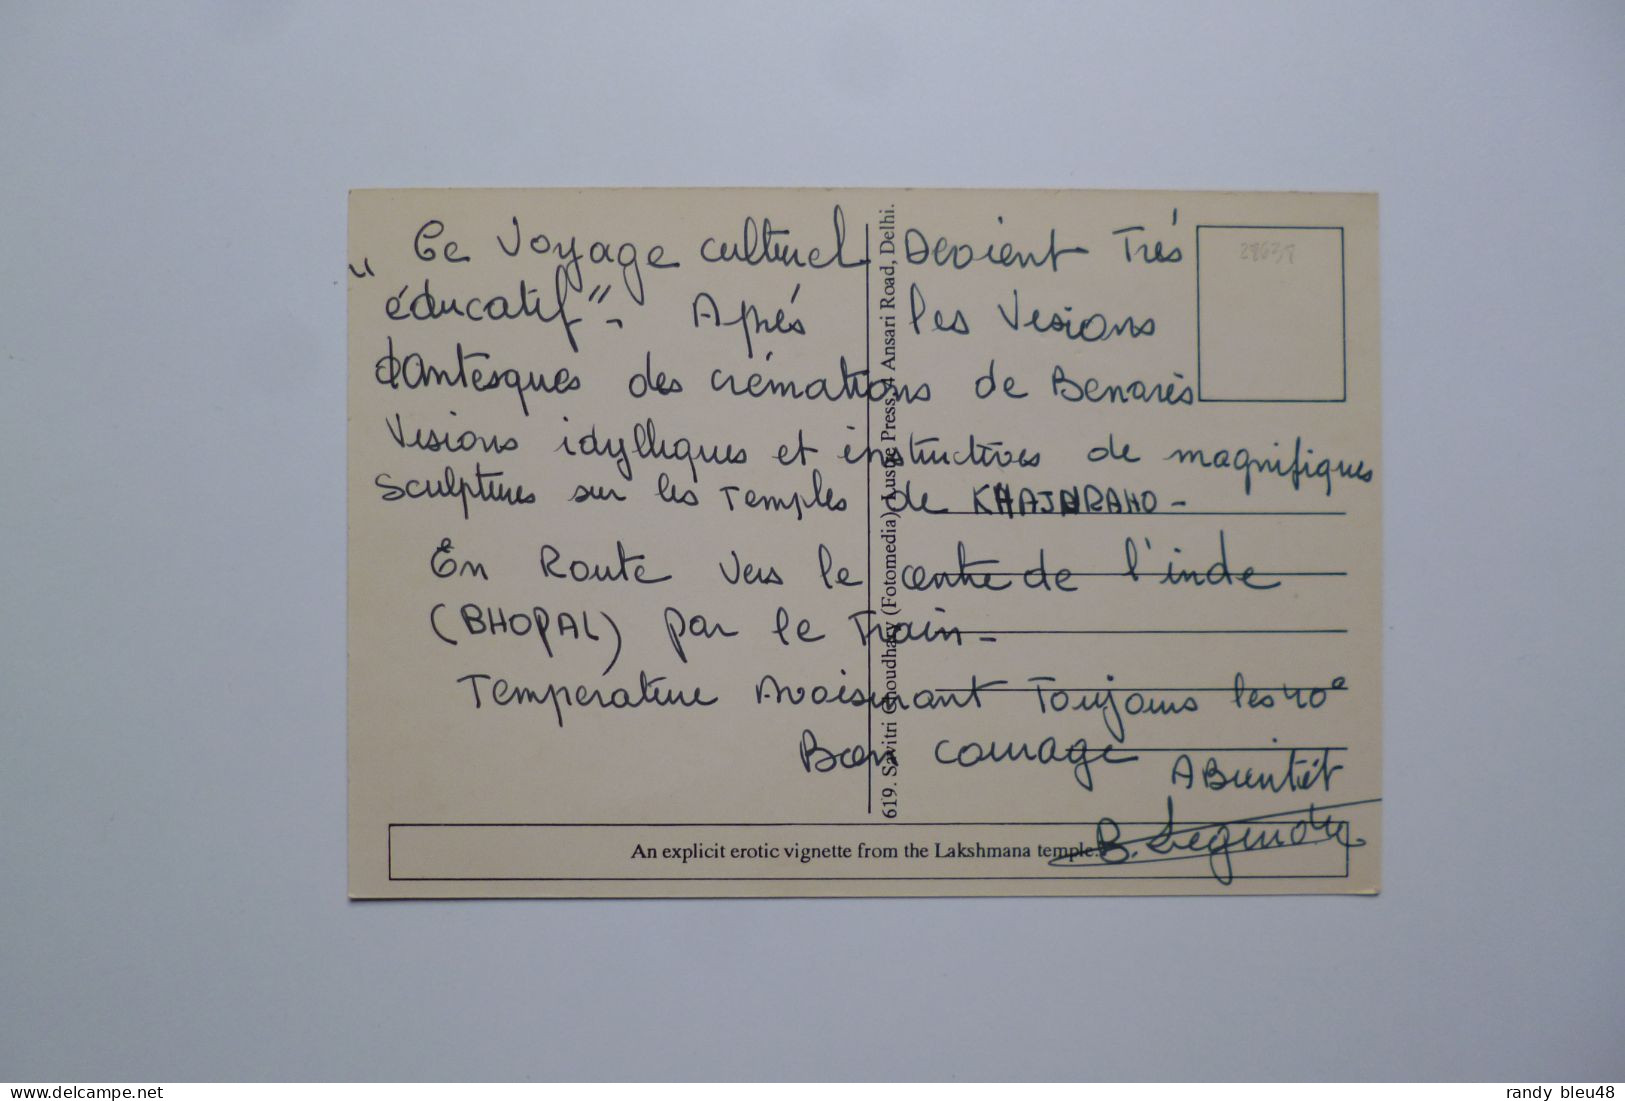 " Ce Voyage culturel Devient Trés
éducatif" - Aprés les Visions
dantesques des crémations de Benarès
Visions idylliques et instructives de magnifiques
Sculptures sur les Temples de KHAJURAHO -
En Route vers le centre de l'inde
(BHOPAL) par le Train -
Temperature Avoisinant Toujours les 40°
Bon courage
A Bientôt
B. Legendre
28638
619. Savitri Choudhary (Fotomedia), Lustre Press, 4 Ansari Road, Delhi.
An explicit erotic vignette from the Lakshmana temple.
randy bleu48